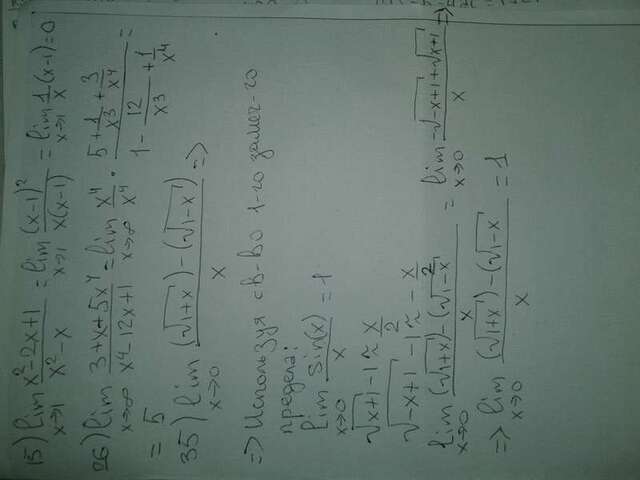 15) lim x→1 (x²-2x+1)/(x²-x) = lim x→1 (x-1)²/(x(x-1)) = lim x→1 1/x (x-1) = 0
26) lim x→∞ (3+x+5x⁴)/(x⁴-12x+1) = lim x→∞ x⁴/x⁴ · (5+1/x³+3/x⁴)/(1-12/x³+1/x⁴) =
= 5
35) lim x→0 ((√1+x)-(√1-x))/x =>
=> Используя св-во 1-го замеч-го
предела:
lim x→0 sin(x)/x = 1
√x+1 -1 ≈ x/2
√-x+1 -1 ≈ -x/2
lim x→0 ((√1+x)-(√1-x))/x = lim x→0 (-√-x+1+√x+1)/x =>
=> lim x→0 ((√1+x)-(√1-x))/x = 1